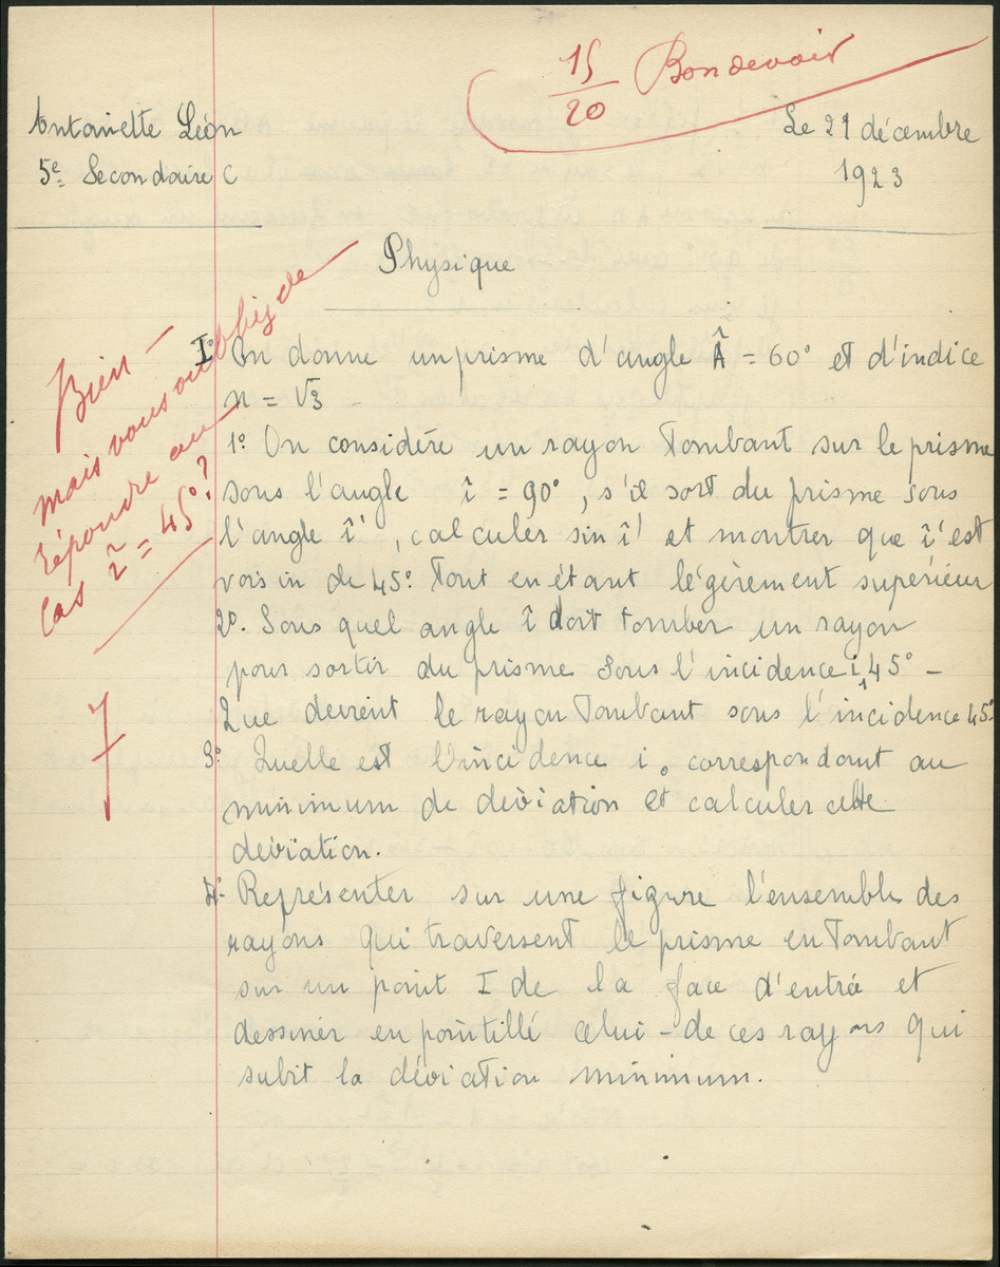 15/20 Bon devoir
Antoinette Léon
Le 21 décembre
5e Secondaire C
1923
Physique
Bien –
mais vous oubliez de
répondre au
cas î = 45° ?
7
I° On donne un prisme d'angle Â = 60° et d'indice
n = √3 –
1° On considère un rayon tombant sur le prisme
sous l'angle î = 90°, s'il sort du prisme sous
l'angle î', calculer sin î' et montrer que î' est
voisin de 45° tout en étant légèrement supérieur
2°. Sous quel angle î doit tomber un rayon
pour sortir du prisme sous l'incidence i, 45° –
Que devient le rayon tombant sous l'incidence 45°
3° Quelle est l'incidence i₀ correspondant au
minimum de déviation et calculer cette
déviation.
4° Représenter sur une figure l'ensemble des
rayons qui traversent le prisme en tombant
sur un point I de la face d'entrée et
dessiner en pointillé celui-de ces rayons qui
subit la déviation minimum.